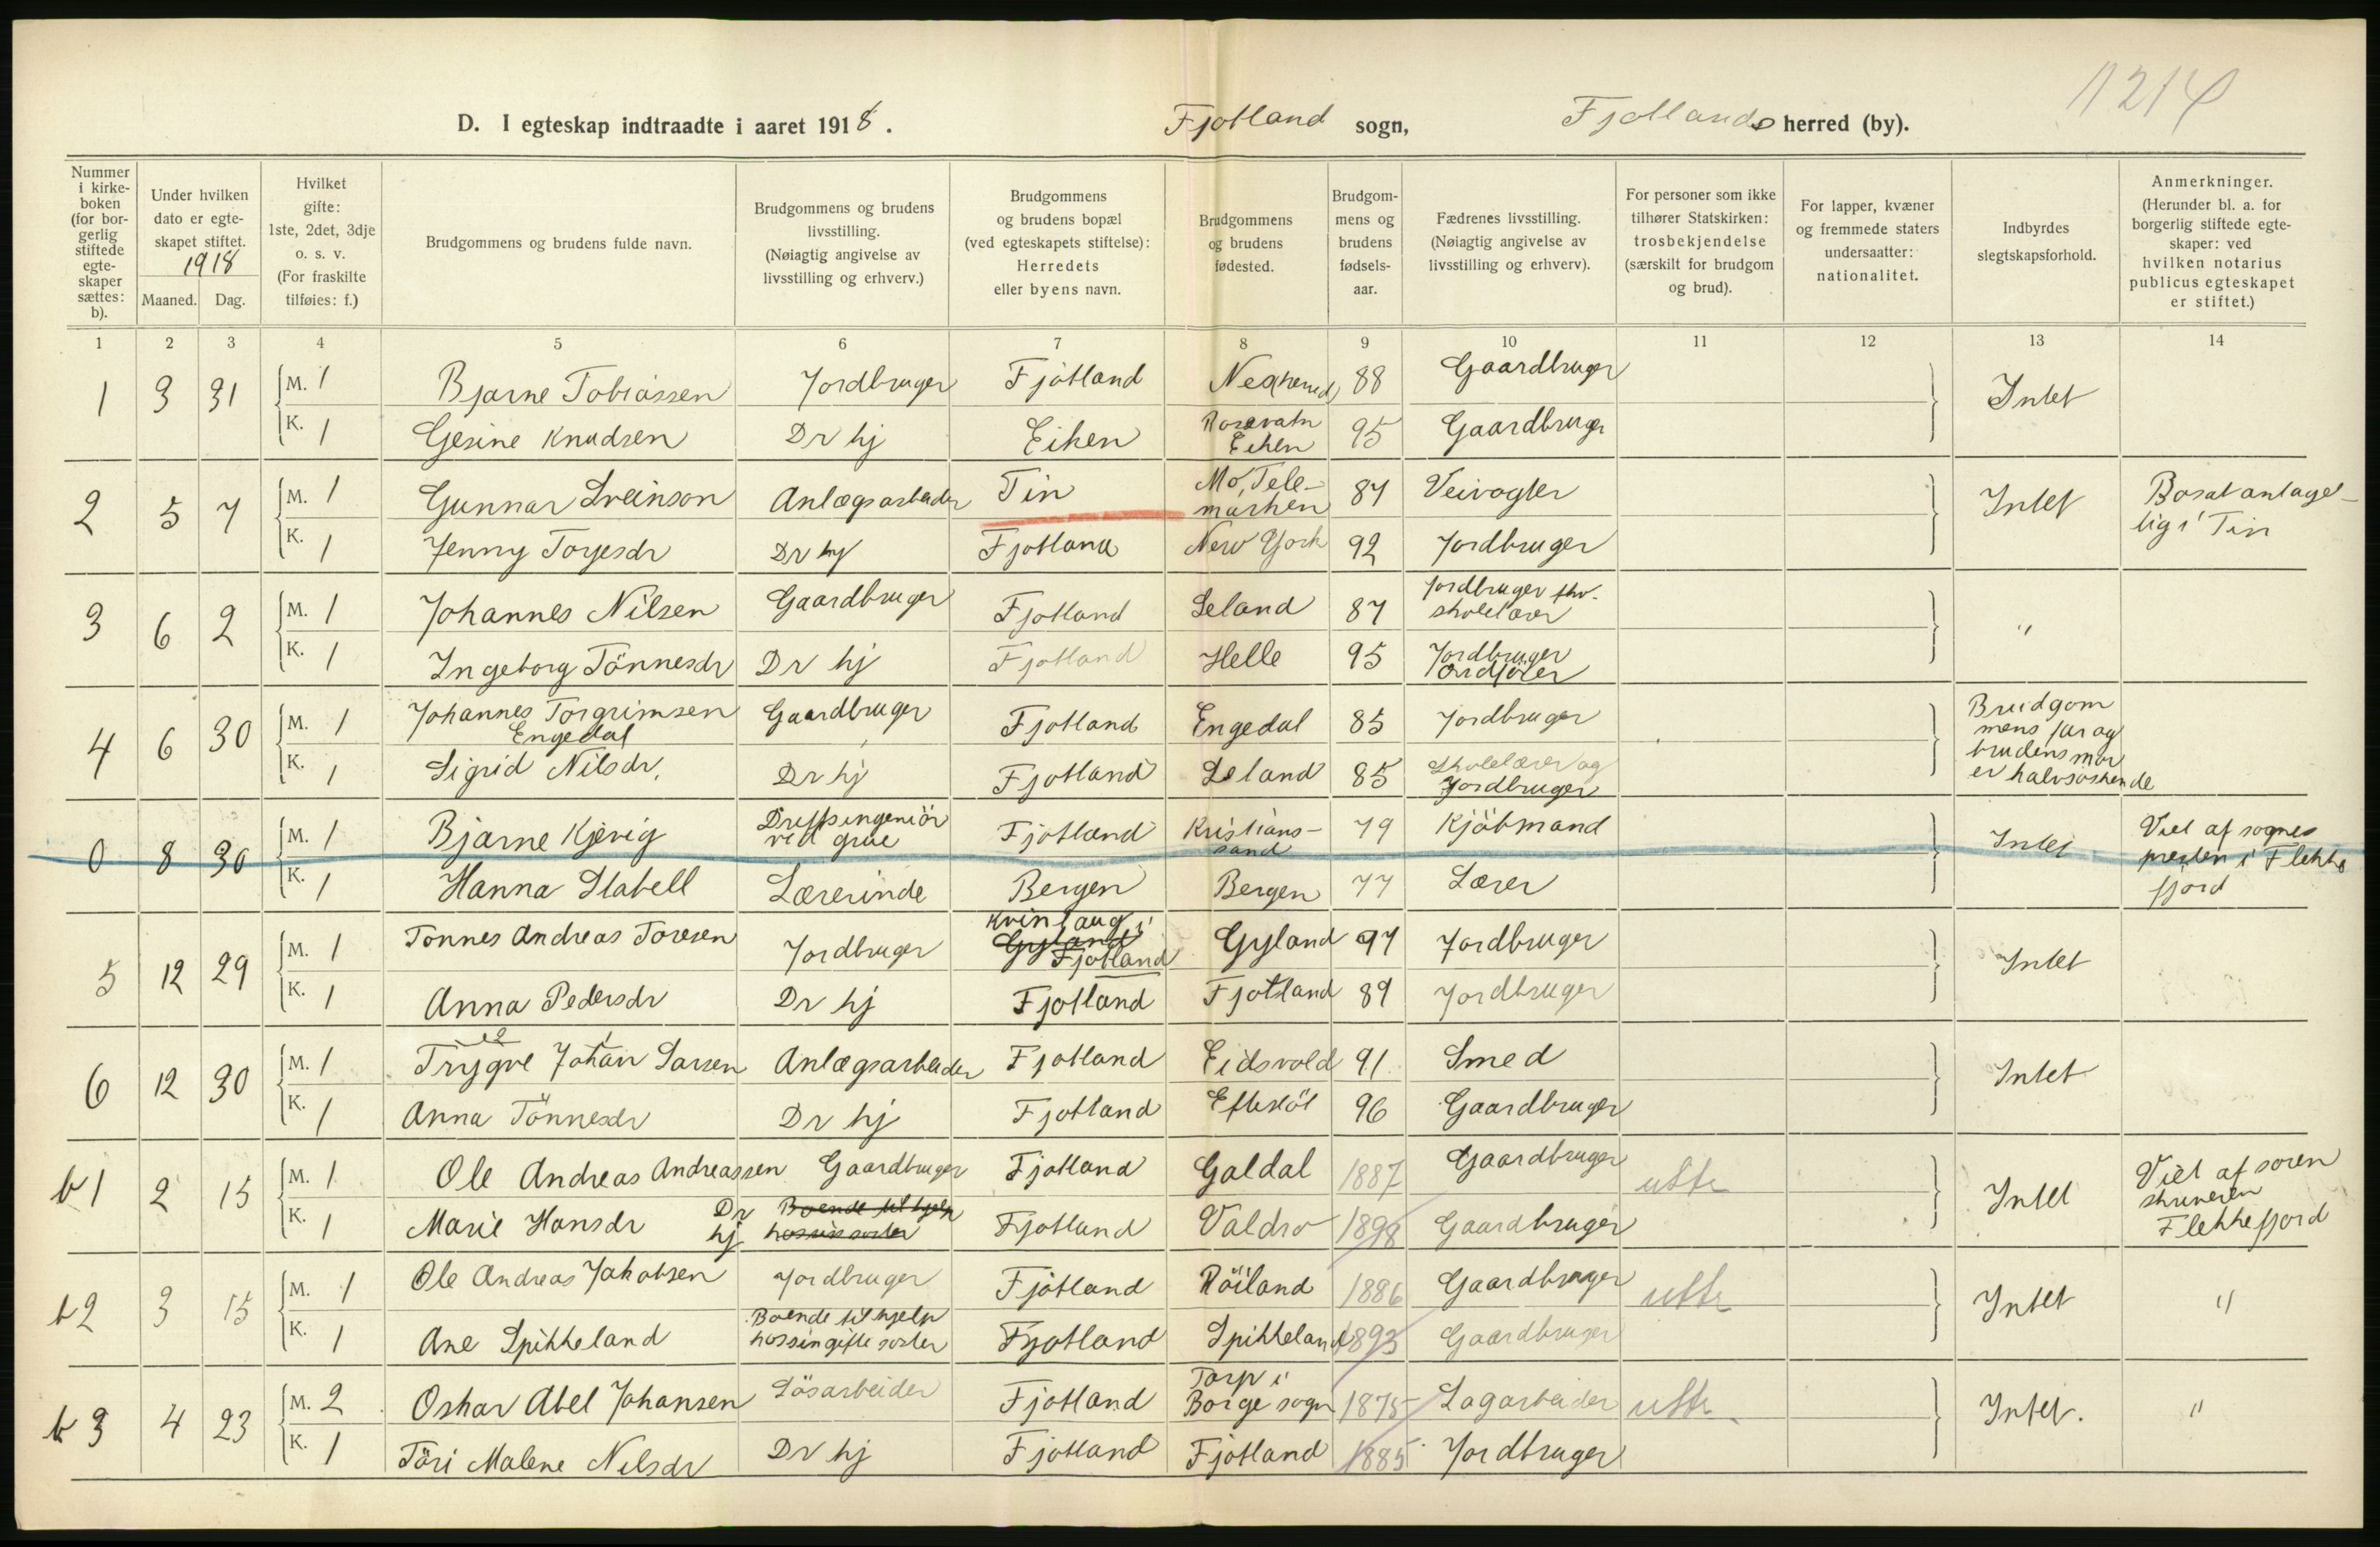 1214
D. I egteskap indtraadte i aaret 1918. Fjotland sogn, Fjotlands herred (by).
Nummer i kirkeboken (for borgerlig stiftede egteskaper sættes: b).
Under hvilken dato er egteskapet stiftet. 1918
Maaned. Dag.
Hvilket gifte: 1ste, 2det, 3dje o. s. v. (For fraskilte tilføies: f.)
Brudgommens og brudens fulde navn.
Brudgommens og brudens livsstilling. (Nøiagtig angivelse av livsstilling og erhverv.)
Brudgommens og brudens bopæl (ved egteskapets stiftelse): Herredets eller byens navn.
Brudgommens og brudens fødested.
Brudgommens og brudens fødselsaar.
Fædrenes livsstilling. (Nøiagtig angivelse av livsstilling og erhverv).
For personer som ikke tilhører Statskirken: trosbekjendelse (særskilt for brudgom og brud).
For lapper, kvæner og fremmede staters undersaatter: nationalitet.
Indbyrdes slegtskapsforhold.
Anmerkninger. (Herunder bl. a. for borgerlig stiftede egteskaper: ved hvilken notarius publicus egteskapet er stiftet.)
1 2 3 4 5 6 7 8 9 10 11 12 13 14
1 3 31 M. 1 Bjarne Tobiassen Jordbruger Fjotland 88 Gaardbruger Intet
K. 1 Gesine Knudsen Dr hj Eiken Rosevatn Eiken 95 Gaardbruger
2 5 7 M. 1 Gunnar Sveinson Anlægsarbeider Tin Mo, Telemarken 87 Veivogter Intet Bosat antagelig i Tin
K. 1 Jenny Torjesdr Dr hj Fjotland New York 92 Jordbruger
3 6 2 M. 1 Johannes Nilsen Gaardbruger Fjotland Seland 87 Jordbruger fhv. skolelærer "
K. 1 Ingeborg Tönnesdr Dr hj Fjotland Helle 95 Jordbruger Ordfører
4 6 30 M. 1 Johannes Torgrimsen Engedal Gaardbruger Fjotland Engedal 85 Jordbruger Brudgommens far og brudens mor er halvsøskende
K. 1 Sigrid Nilsdr. Dr hj Fjotland Seland 85 Skolelærer og Jordbruger
0 8 30 M. 1 Bjarne Kjevig Driftsingeniör ved grue Fjotland Kristianssand 79 Kjöbmand Intet Viet af sognepresten i Flekkefjord
K. 1 Hanna Stabell Lærerinde Bergen Bergen 77 Lærer
5 12 29 M. 1 Tönnes Andreas Toresen Jordbruger Kvinlaug i Gyland Fjotland Gyland 97 Jordbruger Intet
K. 1 Anna Pedersdr Dr hj Fjotland Fjotland 89 Jordbruger
6 12 30 M. 1 Trygve Johan Larsen Anlægsarbeider Fjotland Eidsvold 91 Smed Intet
K. 1 Anna Tönnesdr Dr hj Fjotland Eftestöl 96 Gaardbruger
b1 2 15 M. 1 Ole Andreas Andreassen Gaardbruger Fjotland Galdal 1887 Gaardbruger Intet Viet af sorenskriveren Flekkefjord
K. 1 Marie Hansdr Dr hj Boende til hjelp hos sin søster Fjotland Valdro 1898 Gaardbruger
b2 3 15 M. 1 Ole Andreas Jakobsen Jordbruger Fjotland Röiland 1886 Gaardbruger Intet "
K. 1 Ane Spikkeland Boende til hjelp hos sin gifte søster Fjotland Spikkeland 1893 Gaardbruger
b3 4 23 M. 2 Oskar Abel Johansen Lösarbeider Fjotland Torp i Borge sogn 1875 Sagarbeider Intet. "
K. 1 Töri Malene Nilsdr Dr hj Fjotland Fjotland 1885 Jordbruger